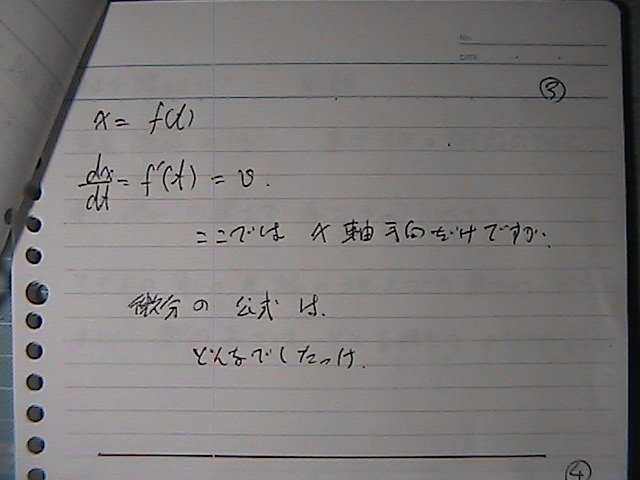 No.
DATE
③
x = f(t)
dx/dt = f'(t) = v.
ここでは x 軸方向だけですが、
微分の 公式は、
どんなでしたっけ.
④